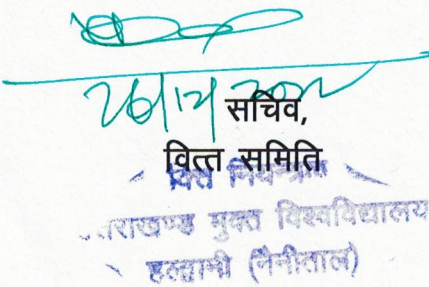 26/12/2022
सचिव,
वित्त समिति
वित्त नियन्त्रक
उत्तराखण्ड मुक्त विश्वविद्यालय
हल्द्वानी (नैनीताल)